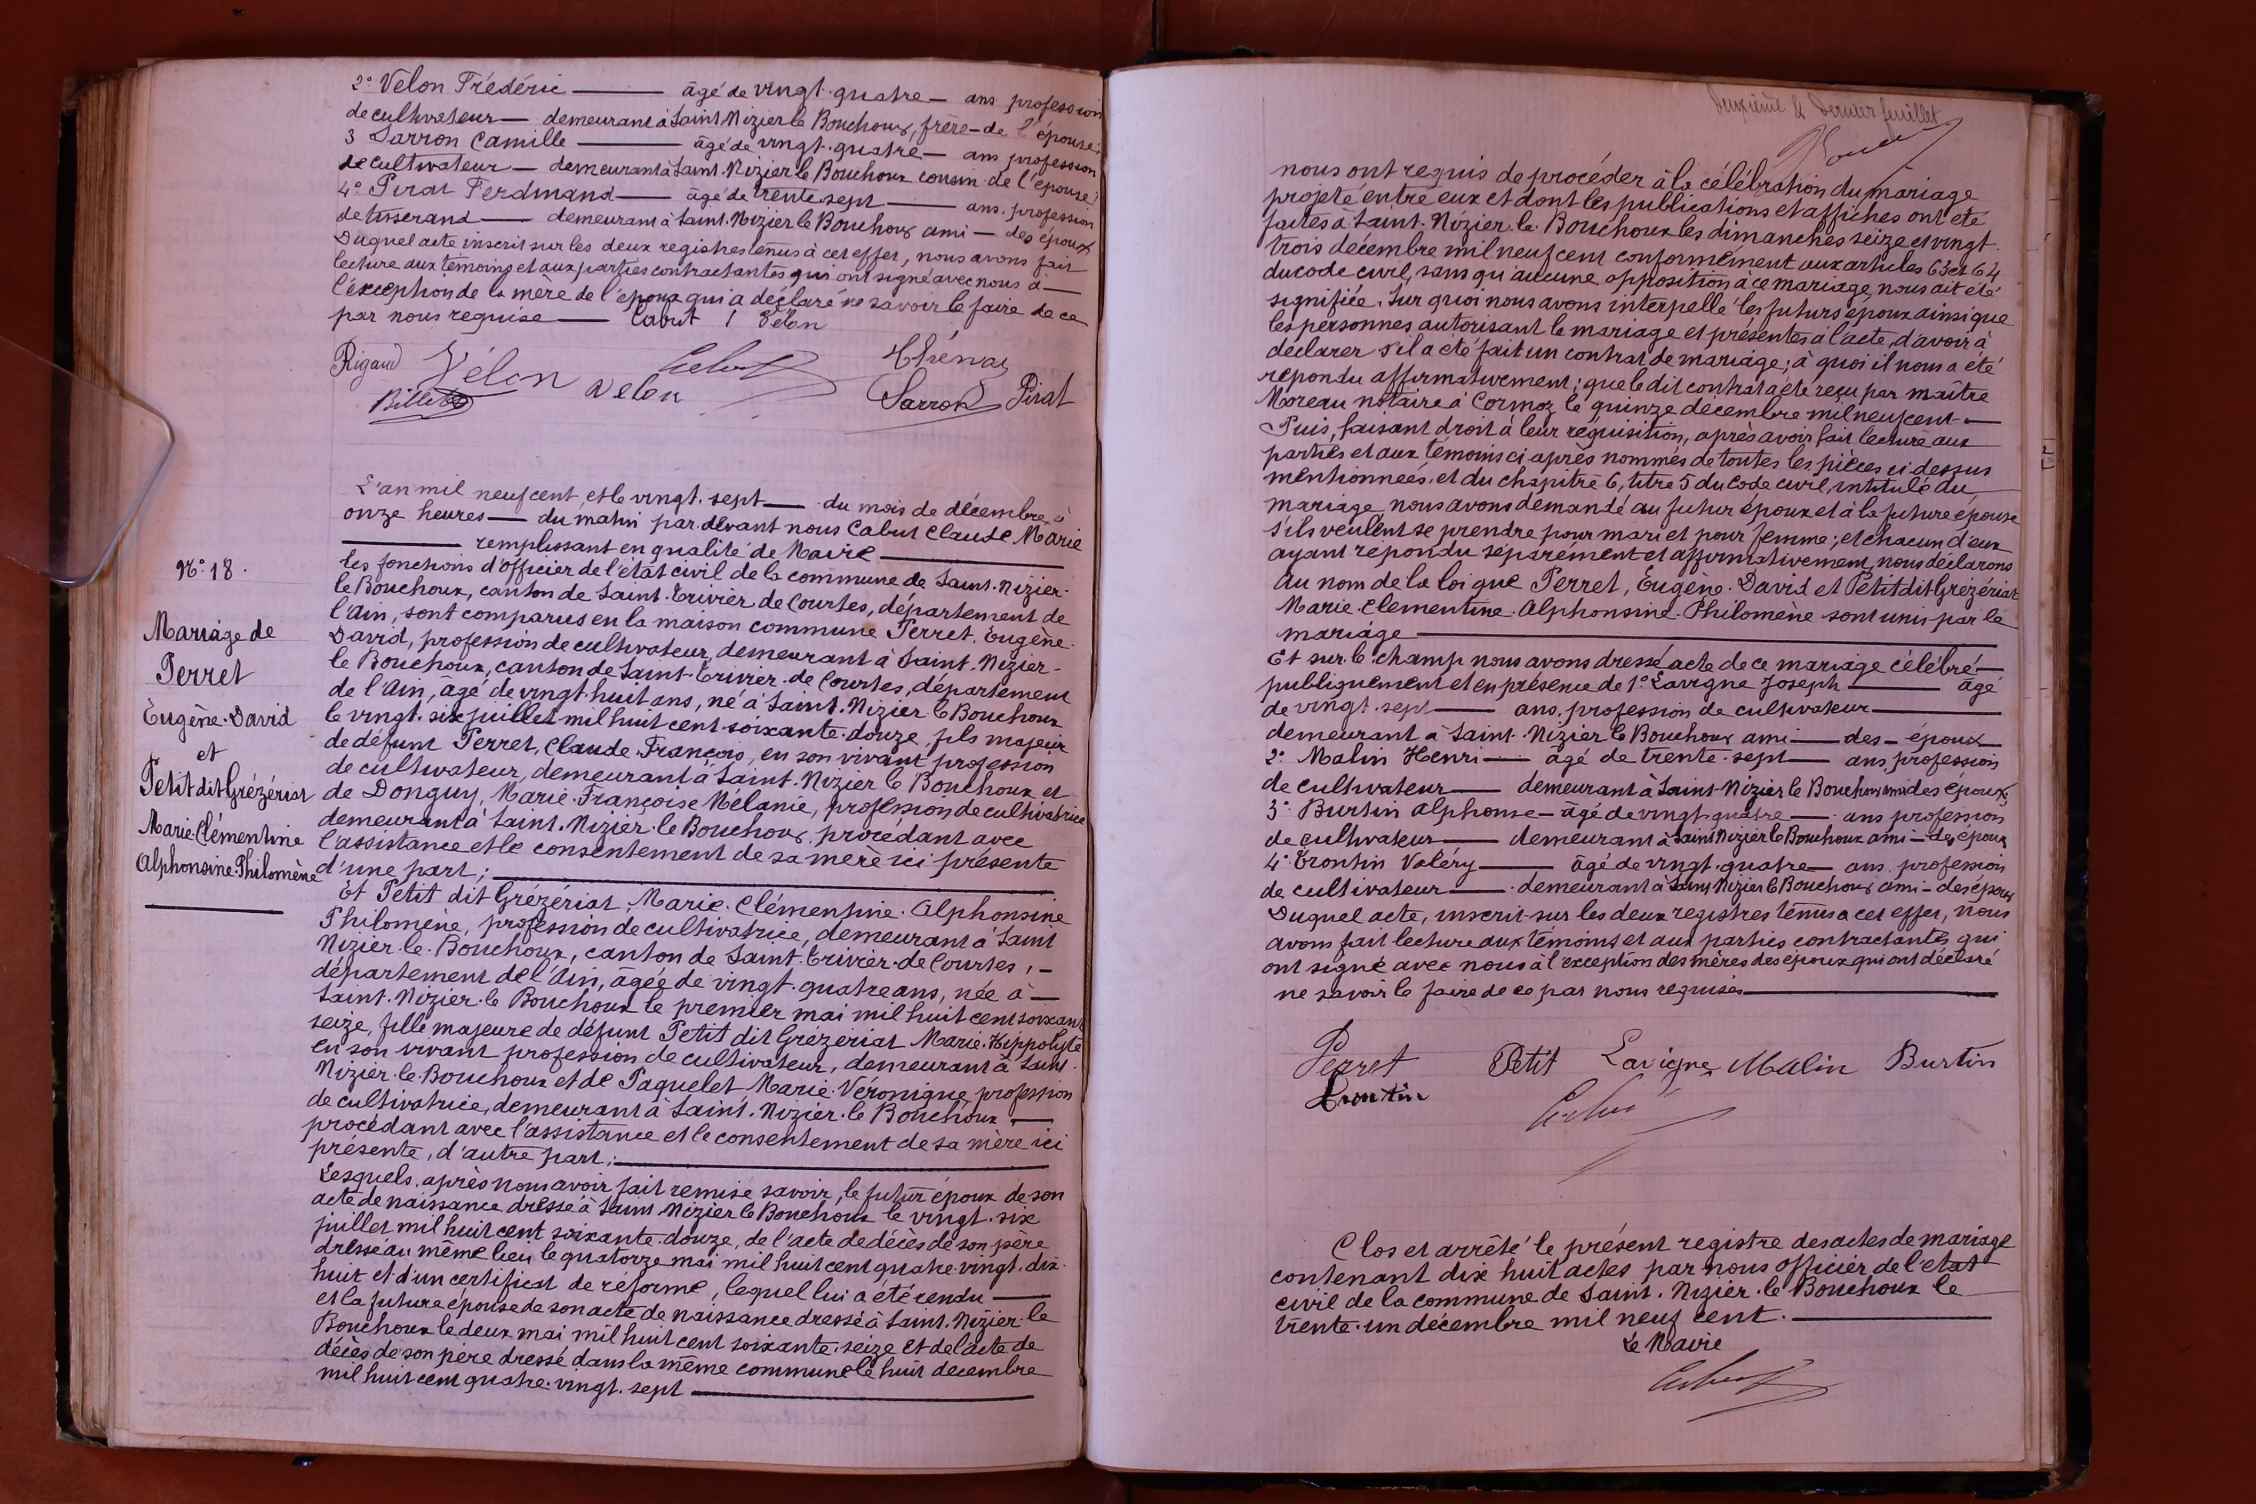 2° Vélon Frédéric — âgé de vingt-quatre — ans profession
de cultivateur — demeurant à Saint Nizier le Bouchoux, frère — de l'épouse.
3 Sarron Camille — âgé de vingt-quatre — ans profession
de cultivateur — demeurant à Saint-Nizier le Bouchoux cousin de l'épouse.
4° Pirat Ferdinand — âgé de trente sept — ans. profession
de tisserand — demeurant à Saint-Nizier le Bouchoux ami — des époux
Duquel acte inscrit sur les deux registres tenus à cet effet, nous avons fait
lecture aux témoins et aux parties contractantes qui ont signé avec nous à —
l'exception de la mère de l'époux qui a déclaré ne savoir le faire de ce
par nous requise — Cabut Vélon
Rigaud Vélon Cabut Thénoz
Billet Velon Sarron Pirat
L'an mil neuf cent, et le vingt-sept — du mois de décembre, à
onze heures — du matin par devant nous Cabut Claude Marie
— remplissant en qualité de Maire —
N° 18.
les fonctions d'officier de l'état civil de la commune de Saint-Nizier-
le Bouchoux, canton de Saint-Trivier de Courtes, département de
l'Ain, sont comparus en la maison commune Perret, Eugène-
Mariage de
Perret
Eugène-David
et
Petit dit Grézériat
Marie-Clémentine
Alphonsine-Philomène
David, profession de cultivateur, demeurant à Saint-Nizier-
le Bouchoux, canton de Saint-Trivier-de Courtes, département
de l'Ain, âgé de vingt-huit ans, né à Saint-Nizier le Bouchoux
le vingt-six juillet mil huit cent soixante-douze, fils majeur
de défunt Perret, Claude-François, en son vivant profession
de cultivateur, demeurant à Saint-Nizier le Bouchoux et
de Donguy, Marie-Françoise Mélanie, profession de cultivatrice
demeurant à Saint-Nizier-le Bouchoux, procédant avec
l'assistance et le consentement de sa mère ici présente
d'une part; —
Et Petit dit Grézériat, Marie-Clémentine-Alphonsine
Philomène, profession de cultivatrice, demeurant à Saint
Nizier-le-Bouchoux, canton de Saint-Trivier-de Courtes, —
département de l'Ain, âgée de vingt-quatre ans, née à —
Saint-Nizier-le Bouchoux le premier mai mil huit cent soixante
seize, fille majeure de défunt Petit dit Grézériat Marie-Hippolyte
en son vivant profession de cultivateur, demeurant à Saint-
Nizier-le-Bouchoux et de Paquelet Marie-Véronique, profession
de cultivatrice, demeurant à Saint-Nizier-le Bouchoux —
procédant avec l'assistance et le consentement de sa mère ici
présente, d'autre part; —
Lesquels, après nous avoir fait remise savoir, le futur époux de son
acte de naissance dressé à Saint Nizier le Bouchoux le vingt-six
juillet mil huit cent soixante-douze, de l'acte de décès de son père
dressé au même lieu le quatorze mai mil huit cent quatre-vingt-dix-
huit et d'un certificat de réforme, lequel lui a été rendu —
et la future épouse de son acte de naissance dressé à Saint-Nizier-le
Bouchoux le deux mai mil huit cent soixante-seize et de l'acte de
décès de son père dressé dans la même commune le huit décembre
mil huit cent quatre-vingt-sept —
Deuxième & Dernier feuillet
nous ont requis de procéder à la célébration du mariage
projeté entre eux et dont les publications et affiches ont été
faites à Saint-Nizier-le-Bouchoux les dimanches seize et vingt
trois décembre mil neuf cent conformément aux articles 63 et 64
du code civil, sans qu'aucune opposition à ce mariage, nous ait été
signifiée. Sur quoi nous avons interpellé les futurs époux ainsi que
les personnes autorisant le mariage et présentes à l'acte, d'avoir à
déclarer s'il a été fait un contrat de mariage; à quoi il nous a été
répondu affirmativement; que le dit contrat a été reçu par maître
Moreau notaire à Cormoz le quinze décembre mil neuf cent —
Puis, faisant droit à leur réquisition, après avoir fait lecture aux
parties et aux témoins ci après nommés de toutes les pièces ci dessus
mentionnées, et du chapitre 6, titre 5 du Code civil, intitulé du
mariage, nous avons demandé au futur époux et à la future épouse
s'ils veulent se prendre pour mari et pour femme; et chacun d'eux
ayant répondu séparément et affirmativement, nous déclarons
au nom de la loi que Perret, Eugène-David et Petit dit Grézériat
Marie-Clémentine-Alphonsine-Philomène sont unis par le
mariage —
Et sur-le-champ nous avons dressé acte de ce mariage célébré —
publiquement et en présence de 1° Lavigne Joseph — âgé
de vingt-sept — ans, profession de cultivateur —
demeurant à Saint-Nizier le Bouchoux ami — des — époux —
2° Malin Henri — âgé de trente-sept — ans, profession
de cultivateur — demeurant à Saint-Nizier le Bouchoux ami des époux
3° Burtin Alphonse — âgé de vingt-quatre — ans profession
de cultivateur — demeurant à Saint Nizier le Bouchoux ami — des époux
4° Trontin Valéry — âgé de vingt-quatre — ans. profession
de cultivateur — demeurant à Saint Nizier le Bouchoux ami — des époux
Duquel acte, inscrit sur les deux registres tenus à cet effet, nous
avons fait lecture aux témoins et aux parties contractantes qui
ont signé avec nous à l'exception des mères des époux qui ont déclaré
ne savoir le faire de ce par nous requises —
Perret Petit Lavigne Malin Burtin
Trontin Cabut
Clos et arrêté le présent registre des actes de mariage
contenant dix huit actes par nous officier de l'état
civil de la commune de Saint-Nizier-le Bouchoux le
trente-un décembre mil neuf cent. —
Le Maire
Cabut